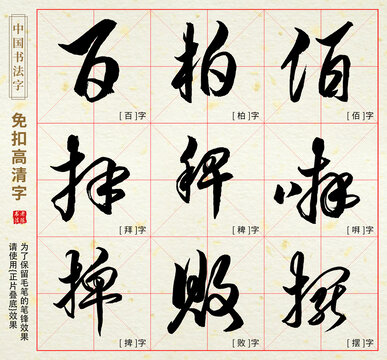 中国书法字
免扣高清字
为了保留毛笔的笔锋效果
请使用[正片叠底]效果
百 柏 佰
[百]字 [柏]字 [佰]字
拜 稗 哵
[拜]字 [稗]字
捭 败 摆
[捭]字 [败]字 [摆]字